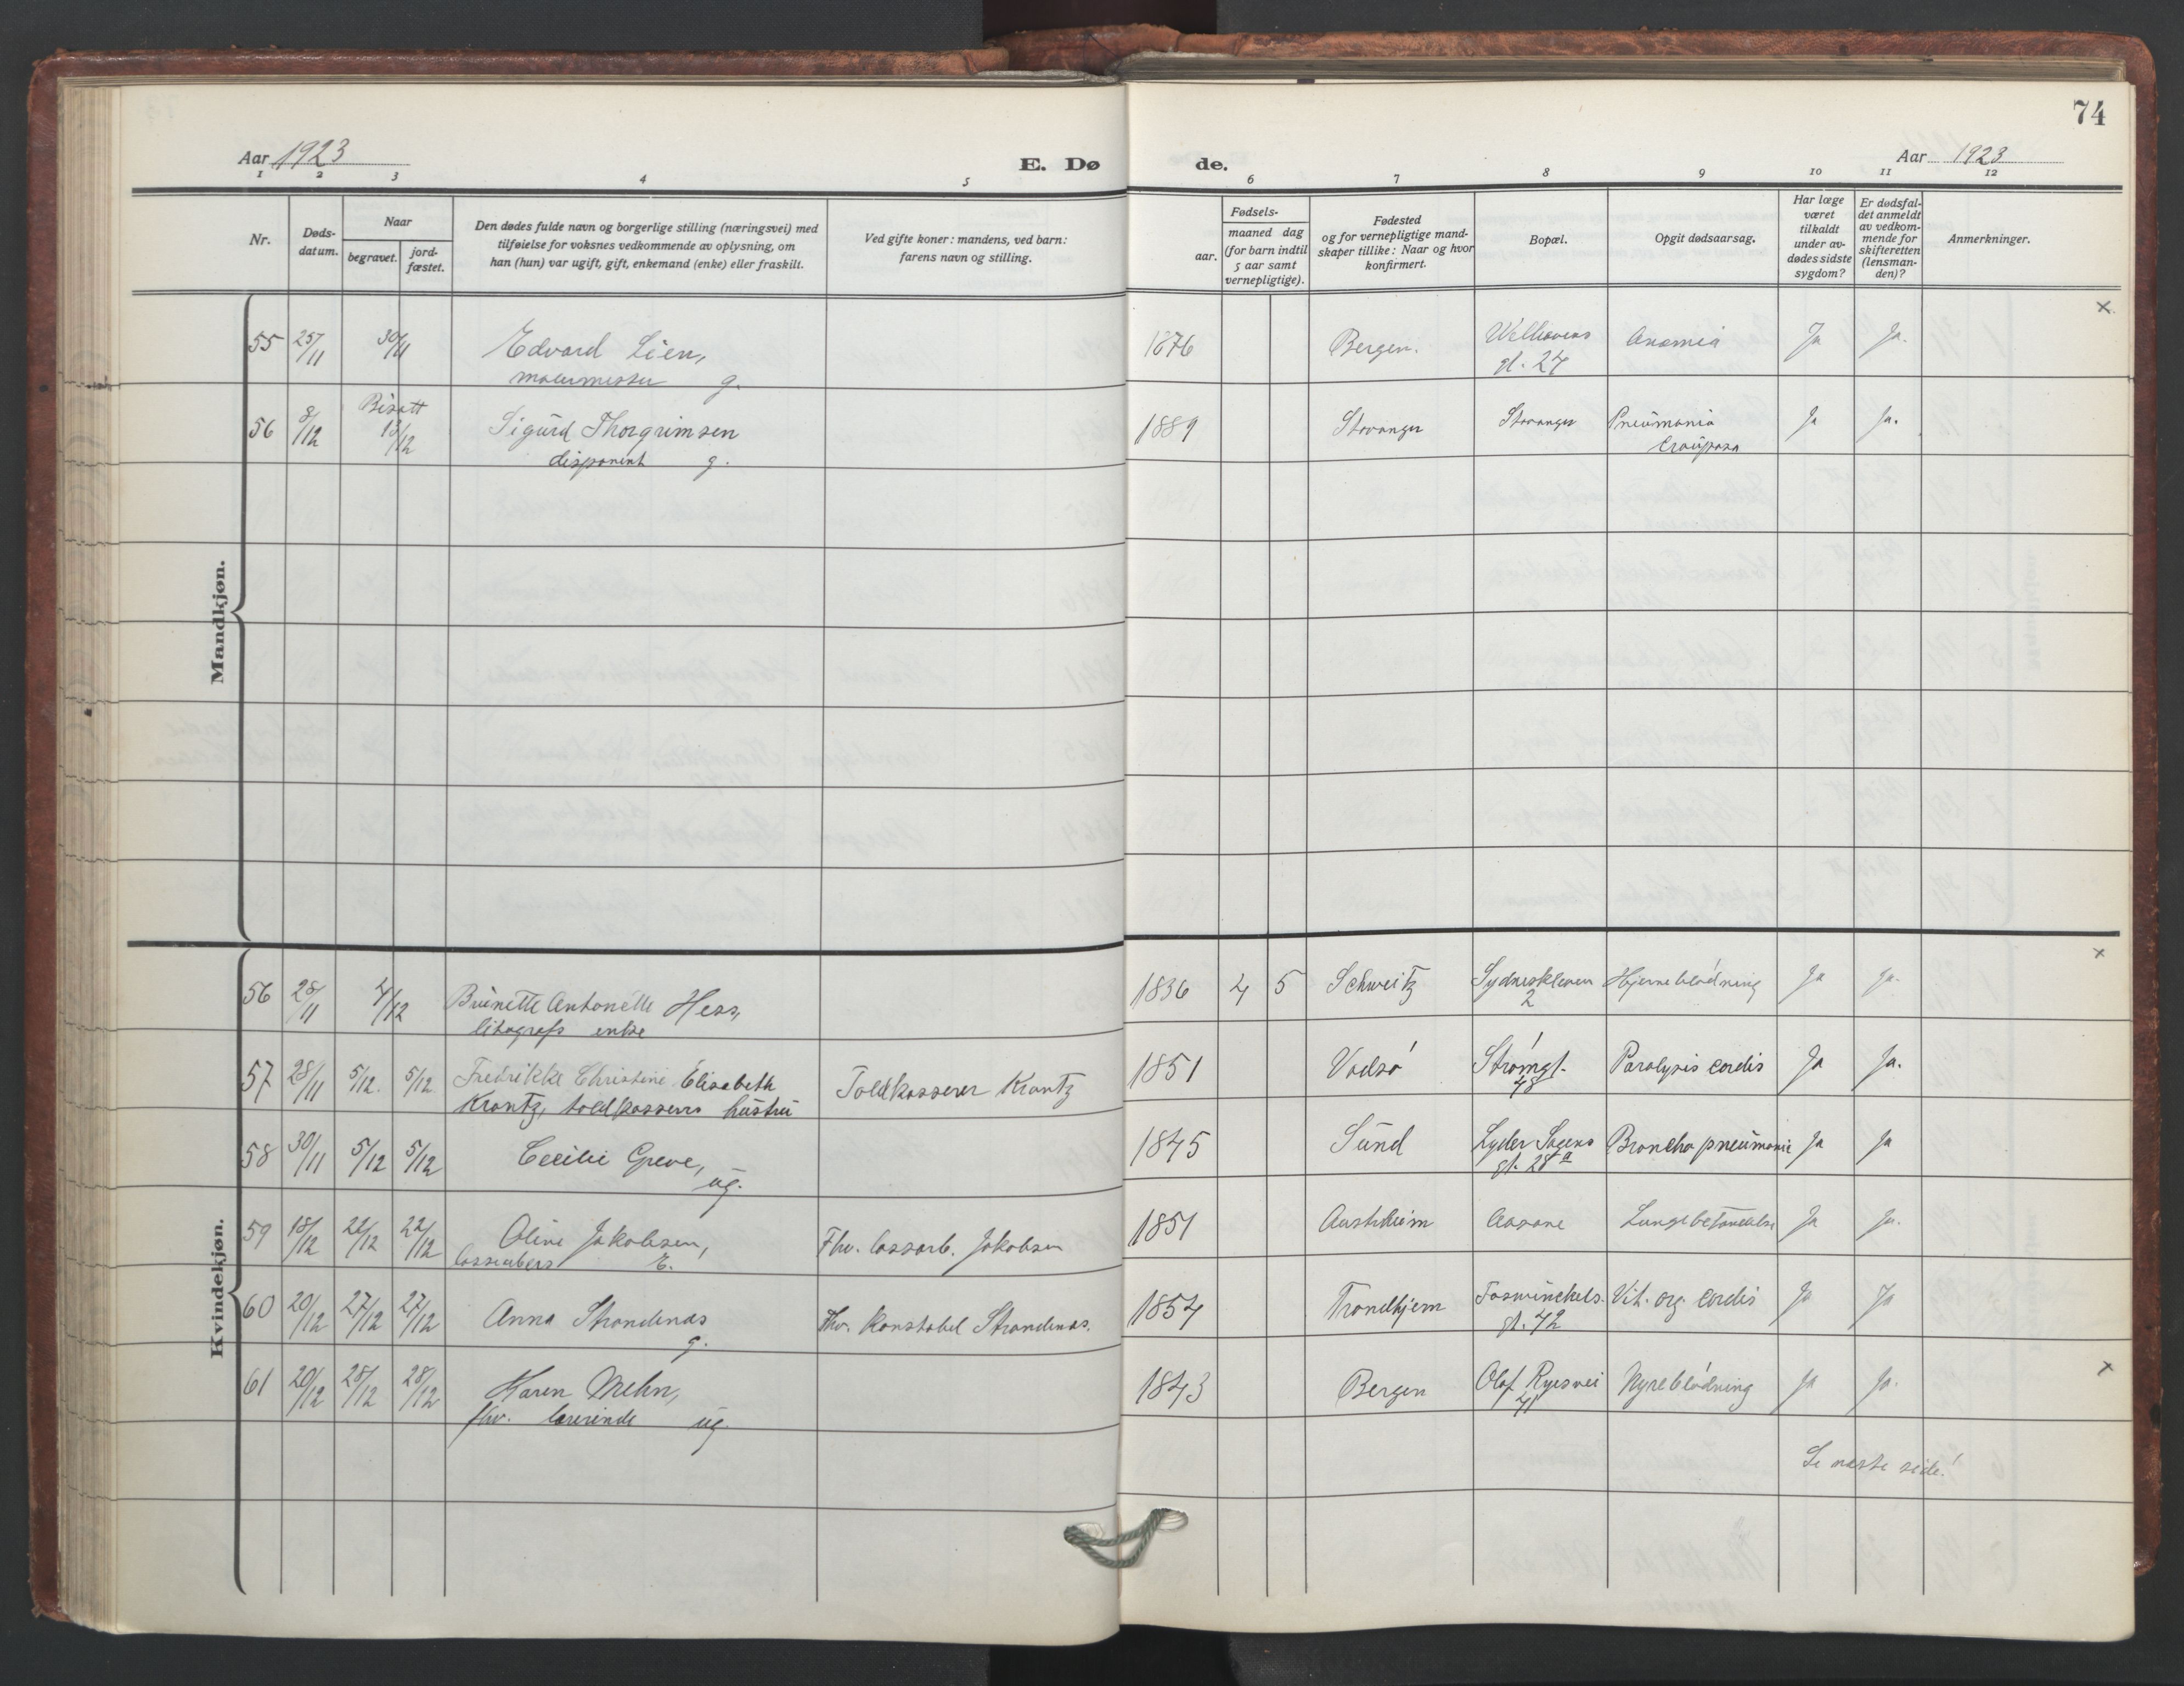 74
Aar 1923
E. Dø de.
Aar 1923
1 2 3 4 5 6 7 8 9 10 11 12
Nr.
Døds-
datum.
Naar
begravet.
jord-
fæstet.
Den dødes fulde navn og borgerlige stilling (næringsvei) med
tilføielse for voksnes vedkommende av oplysning, om
han (hun) var ugift, gift, enkemand (enke) eller fraskilt.
Ved gifte koner: mandens, ved barn:
farens navn og stilling.
aar.
Fødsels-
maaned dag
(for barn indtil
5 aar samt
vernepligtige).
Fødested
og for vernepligtige mand-
skaper tillike: Naar og hvor
konfirmert.
Bopæl.
Opgit dødsaarsag.
Har læge
været
tilkaldt
under av-
dødes sidste
sygdom?
Er dødsfal-
det anmeldt
av vedkom-
mende for
skifteretten
(lensman-
den)?
Anmerkninger.
Mandkjøn.
55 25/11 30/11 Edvard Lien, 1876 Bergen. Welhavens Anæmia Ja Ja. x
malermester g. gt. 24
Bisatt
56 8/12 13/12 Sigurd Thorgrimsen 1889 Stavanger Stavanger Pneumonia Ja Ja.
disponent g. crouposa
Kvindekjøn.
56 28/11 4/12 Brünette Antonette Hess, 1836 4 5 Schweitz Sydneskleven Hjerneblødning Ja Ja. x
litografs enke 2
57 28/11 5/12. 5/12 Fredrikke Christine Elisabeth Toldkasserer Krantz 1851 Vadsø Strømgt. Paralysis cordis Ja Ja.
Krantz, toldkasserers hustru 48
58 30/11 5/12 5/12 Cecilie Greve, 1845 Sund Lyder Sagens Broncho pneumonie Ja Ja
ug. gt. 28a
59 18/12 22/12 22/12 Oline Jakobsen, Fhv. lossarb. Jakobsen 1851 Austrheim Aasane Lungebetændelse Ja Ja.
E.
60 20/12 27/12 27/12 Anna Strandenes Fhv. konstabel Strandenes. 1854 Trondhjem Foswinckels. Vit. org. cordis Ja Ja
g. gt. 42
61 20/12 28/12 28/12 Karen Mehn, 1843 Bergen Olaf Ryesvei Nyreblødning Ja Ja. x
fhv. lærerinde ug.
Se næste side!